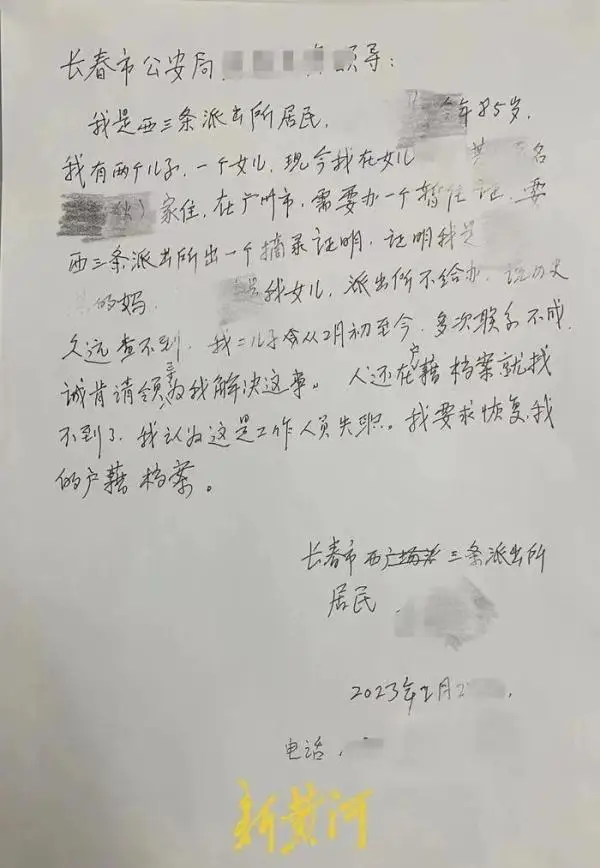 长春市公安局 领导：
我是西三条派出所居民， 今年85岁，
我有两个儿子，一个女儿，现今我在女儿 名
家住，在广州市，需要办一个暂住证，要
西三条派出所出一个摘录证明，证明我是
的妈 是我女儿，派出所不给办，说历史
久远查不到，我二儿子 从2月初至今，多次联系不成，
诚肯请领导为我解决这事。人还在户籍档案就找
不到了，我认为这是工作人员失职。我要求恢复我
的户籍档案。
长春市西 三条派出所
居民，
2023年2月2
电话，
新黄河